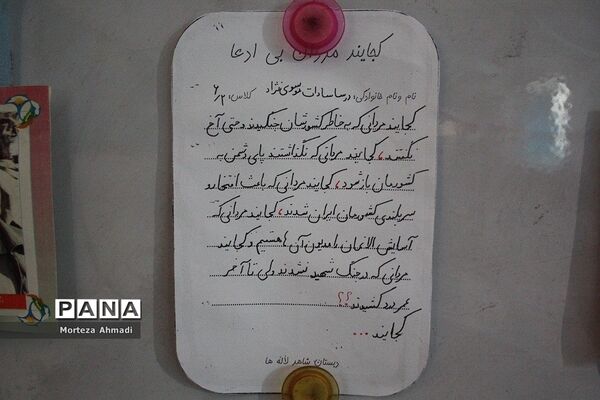 کجایند مردان بی ادعا
نام و نام خانوادگی: درسا سادات موسوی نژاد کلاس: ۶/۲
کجایند مردانی که به خاطر کشورشان جنگیدند و حتی آخ
نگفتند، کجایند مردانی که نگذاشتند پای دشمن به
کشورمان باز شود، کجایند مردانی که باعث افتخار و
سربلندی کشورمان ایران شدند، کجایند مردانی که
آسایش الانمان را مدیون آن ها هستیم و کجایند
مردانی که در جنگ شهید نشدند ولی تا آخر
عمر درد کشیدند؟؟
کجایند ...
دبستان شاهد لاله ها
PANA
Morteza Ahmadi